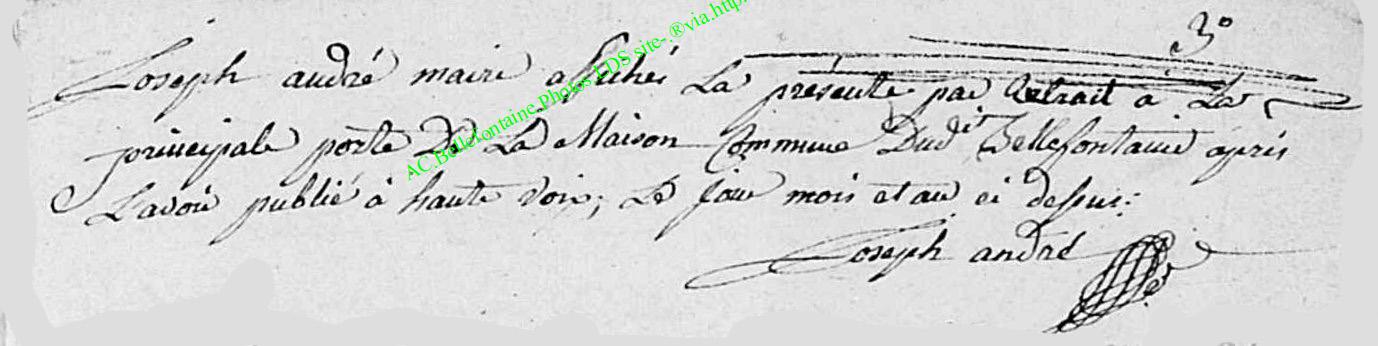 3°
Joseph andré maire affiché La présente par Extrait à La
principale porte De La Maison Commune Dudit Bellefontaine après
L'avoir publié à haute voix, Le jour mois et an ci dessus:
Joseph andré
AC.Bellefontaine.Photos LDS site-.®via.http: